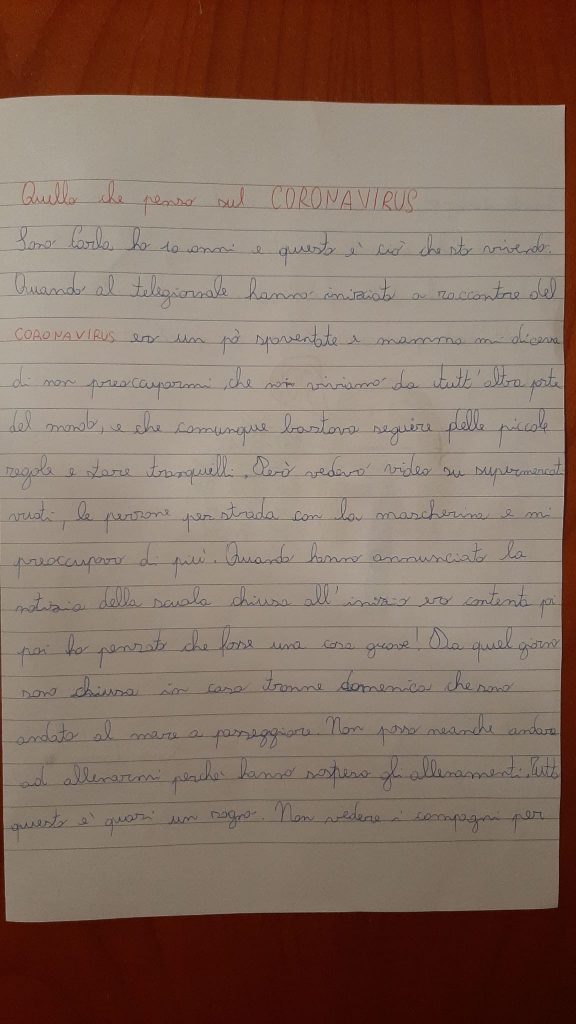 Quello che penso sul CORONAVIRUS
Sono Carla ho 10 anni e questo è ciò che sto vivendo.
Quando al telegiornale hanno iniziato a raccontre del
CORONAVIRUS ero un pò spaventata e mamma mi diceva
di non preoccuparmi, che noi viviamo da tutt'altra parte
del mondo, e che comunque bastava seguire delle piccole
regole e stare tranquilli. Però vedevo video su supermercati
vuoti, le persone per strada con la mascherina e mi
preoccupavo di più. Quando hanno annunciato la
notizia della scuola chiusa all'inizio ero contenta poi
poi ho pensato che fosse una cosa grave! Da quel giorno
sono chiusa in casa tranne domenica che sono
andata al mare a passeggiare. Non posso neanche andare
ad allenarmi perché hanno sospeso gli allenamenti. Tutto
questo è quasi un sogno. Non vedere i compagni per